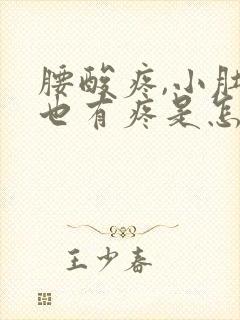 腰酸疼,小肚
也有疼是怎
王少春